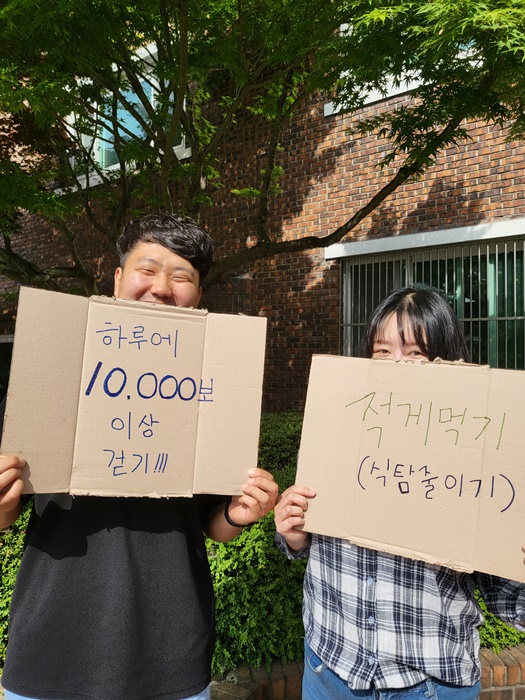 하루에
10,000보
이상
걷기!!!
적게먹기
(식탐줄이기)